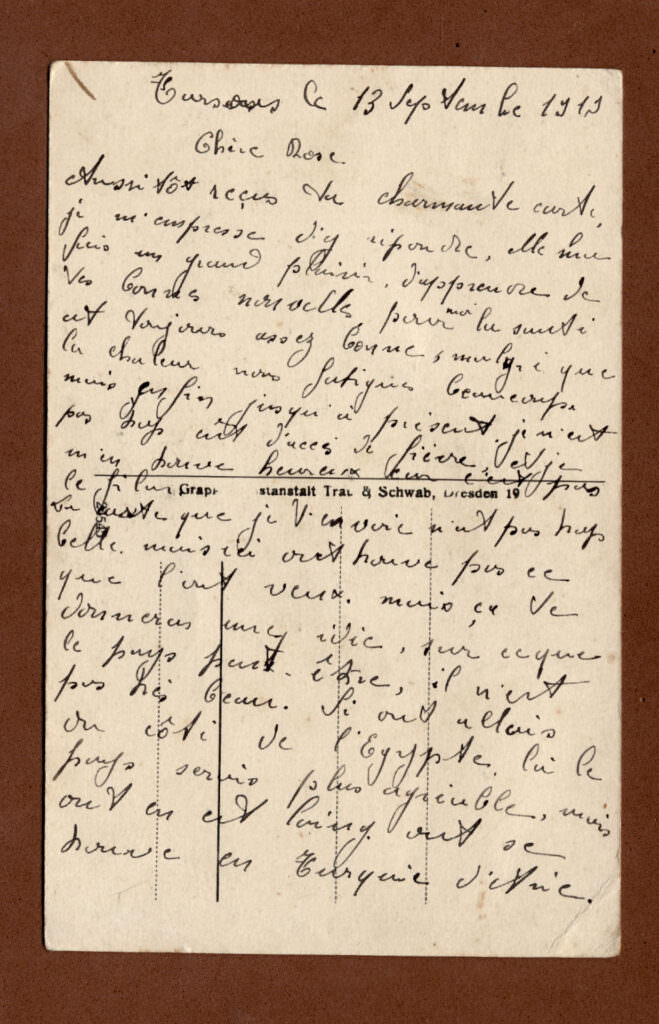 Tarsous le 13 Septembre 1919
Chère Rose
Aussitôt reçus ta charmante carte,
je m'empresse d'y repondre, elle me
fais un grand plaisir, d'apprendre de
tes bonnes nouvelles, pour moi la santé
est toujours assez bonne, malgré que
la chaleur nous fatigue beaucoup.
mais enfin jusqu'à présent je n'est
pas trop eût d'accès de fièvre, et je
m'en trouve heureux car c'est pas
le filon
Grap stanstalt Trau & Schwab, Dresden 19
La carte que je t'envoie n'est pas trop
belle. mais ici ont trouve pas ce
que l'ont veux. mais ça te
donneras une idée, sur ceque
le pays peut être, il n'est
pas très beau. Si ont allais
du côté de l'Egypte, là le
pays serais plus agréable, mais
ont en est loing ont se
trouve en Turquie d'Asie.